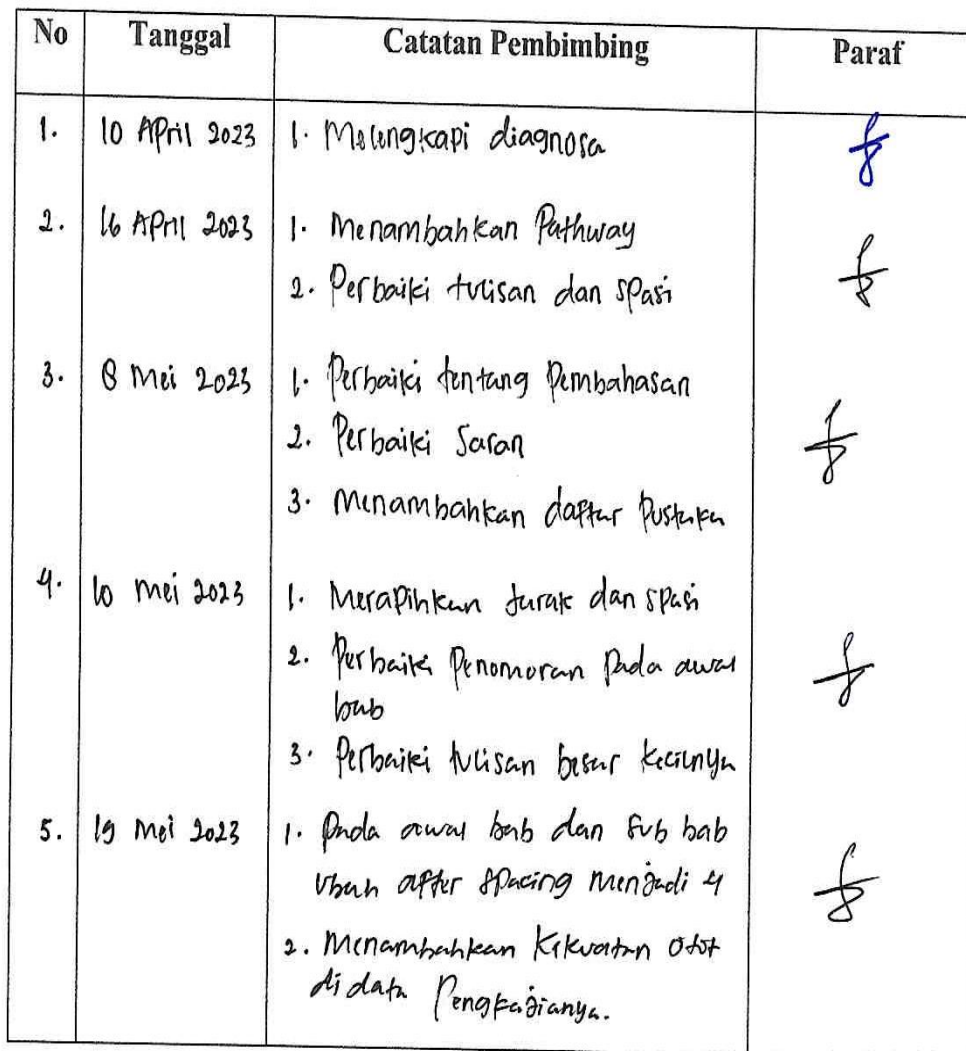 No Tanggal Catatan Pembimbing Paraf
1. 10 April 2023 1. Melengkapi diagnosa
2. 16 April 2023 1. Menambahkan Pathway
2. Perbaiki tulisan dan spasi
3. 8 Mei 2023 1. Perbaiki tentang Pembahasan
2. Perbaiki Saran
3. Menambahkan daftar Pustaka
4. 10 Mei 2023 1. Merapihkan Jarak dan spasi
2. Perbaiki Penomoran Pada awal
bab
3. Perbaiki tulisan besar kecilnya
5. 19 Mei 2023 1. Pada awal bab dan sub bab
Ubah after spacing menjadi 4
2. Menambahkan Kekuatan Otot
di data Pengkajianya.